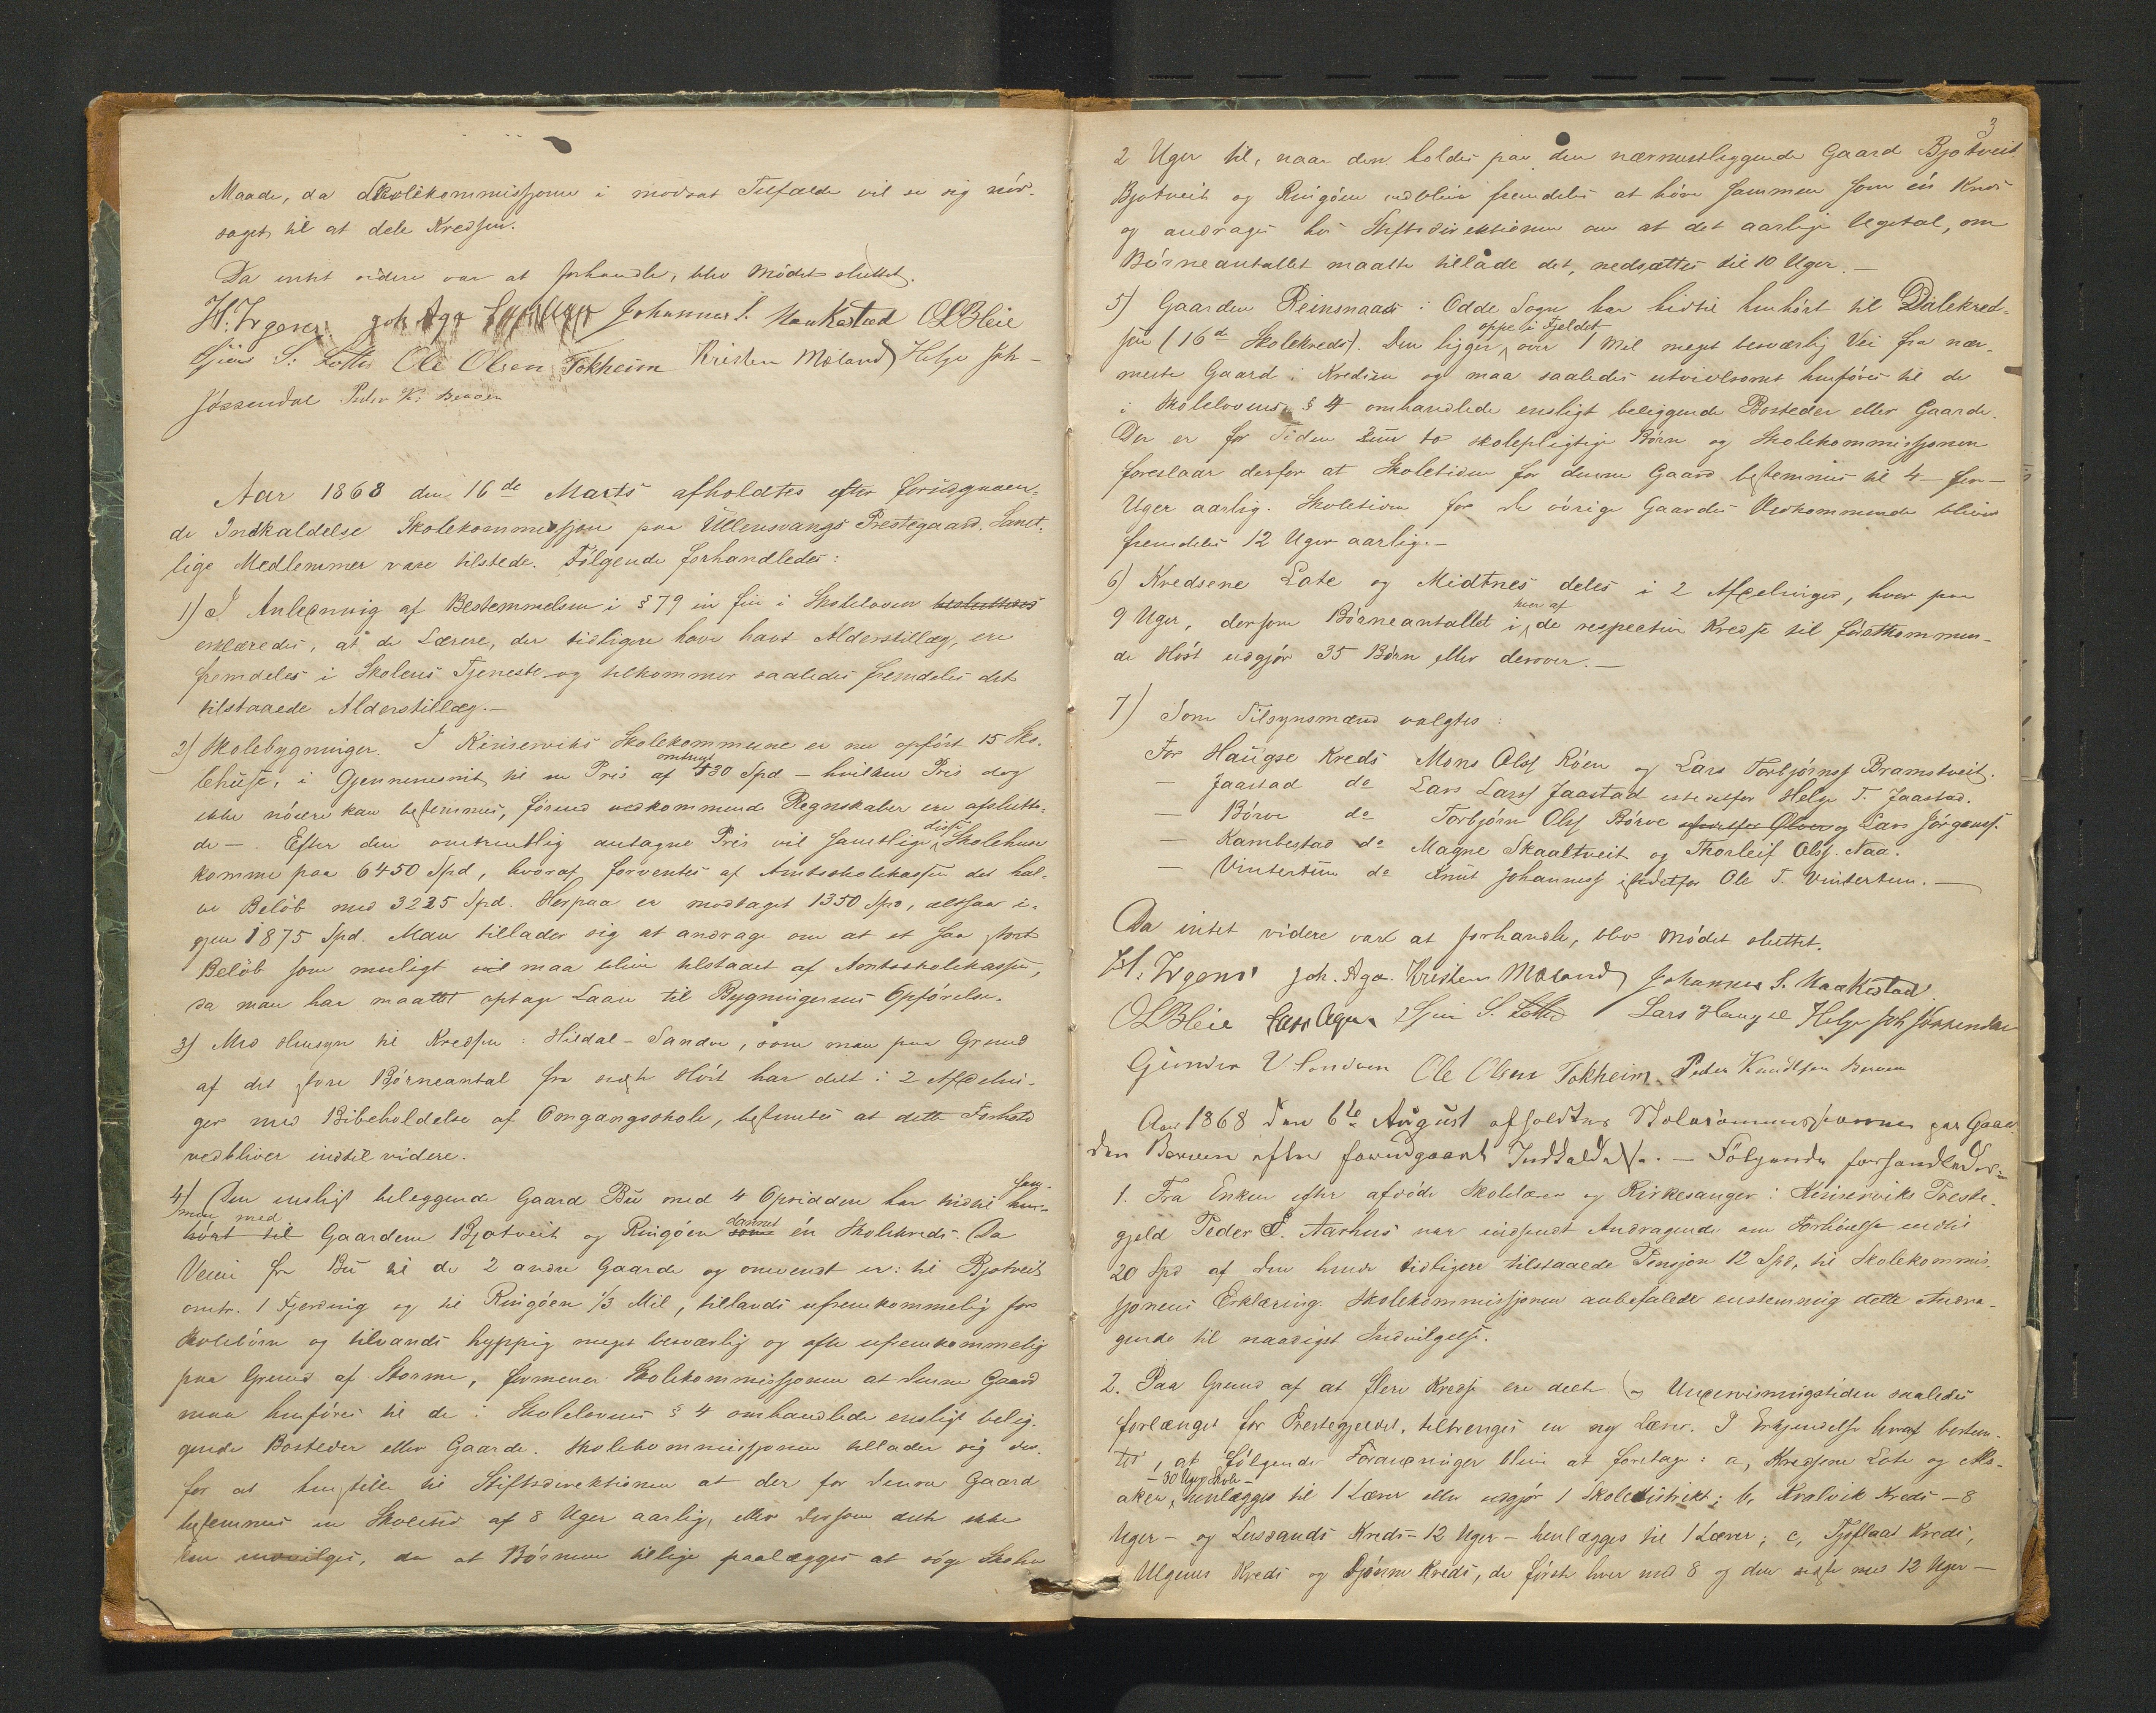 Maade, da Skolekommissjonen i modsat Tilfælde vil se sig nød-
saget til at dele Kredsen.
Da intet videre var at forhandle, blev Mødet sluttet.
H. Irgens. Joh Aga Johannes S. Maakestad O L Bleie
S. Lotte Ole Olsen Tokheim Kristen Moland Helge Joh-
Jøssendal Peder K: Berven
Aar 1868 den 16de Marts afholdtes efter forudgaaen-
de Indkaldelse Skolekommissjon paa Ullensvangs Prestegaard. Samt-
lige Medlemmer vare tilstede. Følgende forhandledes:
1) I Anledning af Bestemmelsen i § 79 in fin i Skoleloven besluttedes
erklæredes, at de Lærere, der tidligere have havt Alderstillæg, ere
fremdeles i Skolens Tjeneste og tilkommer saaledes fremdeles det
tilstaaede Alderstillæg.-
2) Skolebygninger. I Kinserviks Skolekommune er nu opført 15 Sko-
lehuse, i Gjennemsnit til en Pris af omtrent 430 Spd - hvilken Pris dog
ikke nøiere kan bestemmes, førend vedkommende Regnskaber ere afslutte-
de -. Efter den omtrentlig antagne Pris vil samtlige disse Skolehuse
komme paa 6450 Spd, hvoraf forventes af Amtsskolekassen det hal-
ve Beløb med 3225 Spd. Herpaa er modtaget 1350 Spd, altsaa i-
gjen 1875 Spd. Man tillader sig at andrage om at et saa stort
Beløb som muligt vil maa blive tilstaaet af Amtsskolekassen,
da man har maattet optage Laan til Bygningernes Opførelse.
3) Med Hensyn til Kredsen: Hildal - Sandve, som man paa Grund
af det store Børneantal fra sidste Høst har delt i 2 Afdelin-
ger med Bibeholdelse af Omgangsskole, bestemtes at dette Forhold
vedbliver indtil videre.
4) Den ensligt beliggende Gaard Bu med 4 Opsiddere har hidtil hen- sam-
men med
hørt til Gaardene Bjotveit og Ringøen som dannet én Skolekreds. Da
Veien fra Bu til de 2 andre Gaarde og omvendt er: til Bjotveit
omtr. 1 Fjerding og til Ringøen 1/3 Mil, tillands ufremkommelig for
Skolebørn og tilvands hyppig meget besværlig og ofte ufremkommelig
paa Grund af Storme, formener Skolekommissjonen at denne Gaard
maa henføres til de i Skolelovens § 4 omhandlede ensligt belig-
gende Bosteder eller Gaarde. Skolekommissjonen tillader sig der-
for at henstille til Stiftsdirektionen at der for denne Gaard
bestemmes en Skoletid af 8 Uger aarlig, eller dersom dette ikke
kan indvilges, da at Børnene tillige paalægges at søge Skolen
3
2 Uger til, naar den holdes paa den nærmestliggende Gaard Bjotveit.
Bjotveit og Ringøen vedblive fremdeles at høre sammen som én Kreds
og andrages hos Stiftsdirektionen om at det aarlige Ugetal, om
Børneantallet maatte tillade det, nedsættes til 10 Uger.-
5) Gaarden Reinsnaas i Odde Sogn har hidtil henhørt til Dalekred-
sen (16de Skolekreds). Den ligger oppe i Fjeldet over 1 Mil meget besværlig Vei fra nær-
meste Gaard i Kredsen og maa saaledes utvivlsomt henføres til de
i Skolelovens § 4 omhandlede ensligt beliggende Bosteder eller Gaarde.
Der er for Tiden to skolepligtige Børn og Skolekommissjonen
foreslaar derfor at Skoletiden for denne Gaard bestemmes til 4 - fire -
Uger aarlig. Skoletiden for de øvrige Gaardes Vedkommende bliver
fremdeles 12 Uger aarlig.-
6) Kredsene Lote og Midtnes deles i 2 Afdelinger, hver paa
9 Uger, dersom Børneantallet i hver af de respective Kredse til førstkommen-
de Høst udgjør 35 Børn eller derover.-
7) Som Tilsynsmænd valgtes:
For Haugse Kreds Mons Olss Røen og Lars Torbjørnss Bramstveit.
- Jaastad do Lars Larss Jaastad istedetfor Helge T. Jaastad.
- Børve do Torbjørn Olss Børve istedetfor Olver og Lars Jørgenss.
- Kambestad do Magne Skaaltveit og Thorleif Olss. Aaa.
- Vintertun do Knut Johanness istedetfor Ole T. Vintertun.-
Da intet videre var at forhandle, blev Mødet sluttet.
H. Irgens Joh. Aga. Kristen Moland Johannes S. Maakestad
O L Bleie Lars Aga S. Lotte Lars Haugse Helge Joh Jøssendal
Gunder V Sandven Ole Olsen Tokheim. Peder Knudtsen Berven
Aar 1868 den 6te August afholdtes Skolecommissionen paa Gaar-
den Berven efter forudgaaet Indkaldelse. - Følgende forhandledes:
1. Fra Enken efter afdøde Skolelærer og Kirkesanger i Kinserviks Preste-
gjeld Peder Aarhus var indsendt Andragende om Forhøielse indtil
20 Spd af den hende tidligere tilstaaede Pensjon 12 Spd, til Skolekommis-
sjonens Erklæring. Skolekommissjonen anbefalede enstemmig dette Andra-
gende til naadigst Indvilgelse.
2. Paa Grund af at flere Kredse ere delte og Undervisningstiden saaledes
forlænget for Prestegjeldet, tiltrenges en ny Lærer. I Erkjendelse heraf bestem-
tes, at følgende Forandringer blive at foretage: a, Kredsene Lote og Als-
aker - 30 Uger Skole - henlægges til 1 Lærer eller udgjør 1 Skoledistrikt; b, Kvalvik Kreds - 8
Uger - og Lussands Kreds - 12 Uger - henlægges til 1 Lærer; c, Tjoflaat Kreds,
Ulgenes Kreds og Djønne Kreds, de første hver med 8 og den sidste med 12 Uger -